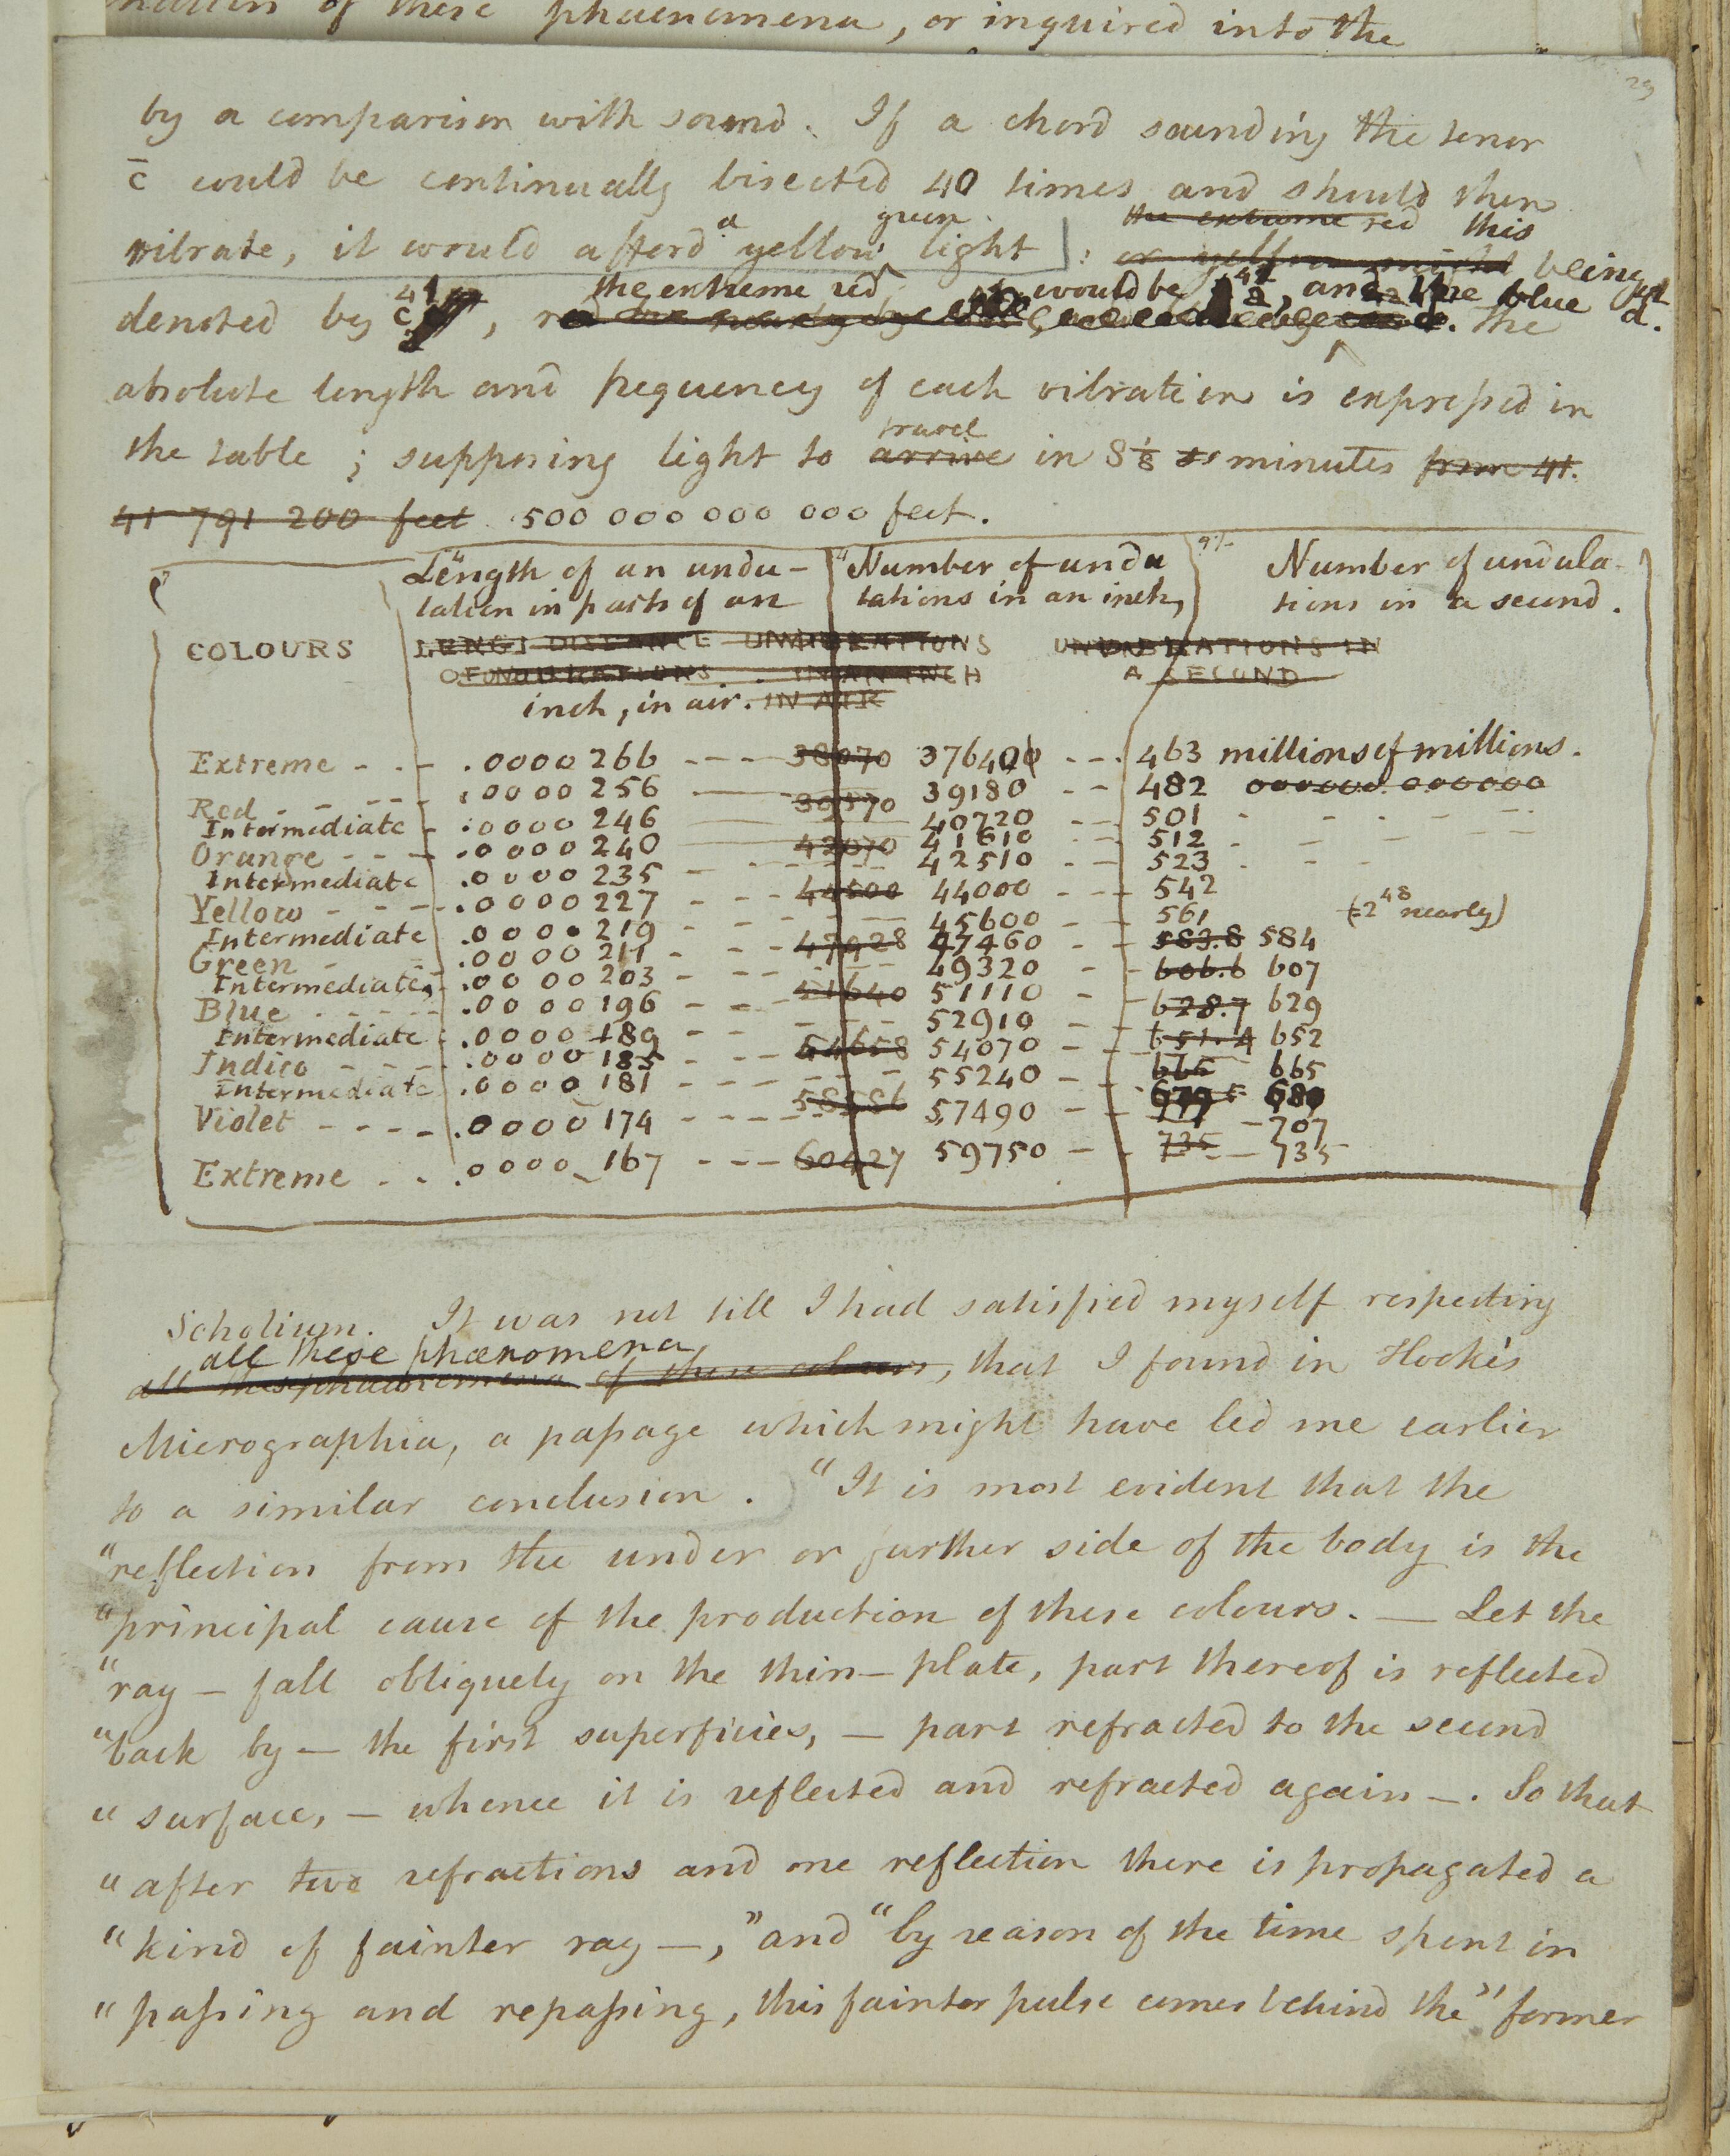 nation of these phaenomena, or inquired into the
29
by a comparison with sound. If a chord sounding the tenor
c̄ could be continually bisected 40 times and should then
a green the extreme red this
vibrate, it would afford yellow light : or yellow being
41 the extreme red would be 41 a, and the blue 41 d.
denoted by c, red The
absolute length and frequency of each vibration is expreſsed in
travel
the table ; supposing light to arrive in 8 1/8 minutes from 41.
41 791 200 feet 500 000 000 000 feet.
Length of an undu- Number of undu Number of undula-
lation in parts of an lations in an inch, tions in a second.
COLOURS LENGT DISTANCE UNDULATIONS UNDULATIONS IN
OF UNDULATIONS IN AN INCH A SECOND
inch, in air. IN AIR
Extreme - - - .0000266 - - - 38070 376400 - - - 463 millions of millions.
Red - - - - .0000256 39370 39180 - - 482 000000 000000
Intermediate - .0000246 40720 - - 501
Orange - - - .0000240 42070 41610 - - 512
Intermediate .0000235 - 42510 - - 523
Yellow - - - .0000227 - - - 44500 44000 - - - 542
Intermediate .0000219 - - - 45600 - - 561 (=2⁴⁸ nearly)
Green - .0000211 - - - 47928 47460 - - 583.8 584
Intermediate .0000203 - - - 49320 - - 606.6 607
Blue - - - - .0000196 - - - 51640 51110 - - 628.7 629
Intermediate .0000189 - - - 52910 - - 651.4 652
Indico - - - .0000185 - - - 54658 54070 - - 665 665
Intermediate .0000181 - - - 55240 - - 680
Violet - - - - .0000174 - - - 57490 - - 707
Extreme - - .0000167 - - - 60427 59750 - - 735 - - 735
Scholium. It was not till I had satisfied myself respecting
all these phænomena
all these phaenomena of these colours, that I found in Hooke's
Micrographia, a paſsage which might have led me earlier
to a similar conclusion. "It is most evident that the
"reflection from the under or further side of the body is the
"principal cause of the production of these colours. — Let the
"ray — fall obliquely on the thin — plate, part thereof is reflected
"back by — the first superficies, — part refracted to the second
"surface, — whence it is reflected and refracted again —. So that
"after two refractions and one reflection there is propagated a
"kind of fainter ray —," and "by reason of the time spent in
"paſsing and repaſsing, this fainter pulse comes behind the" former